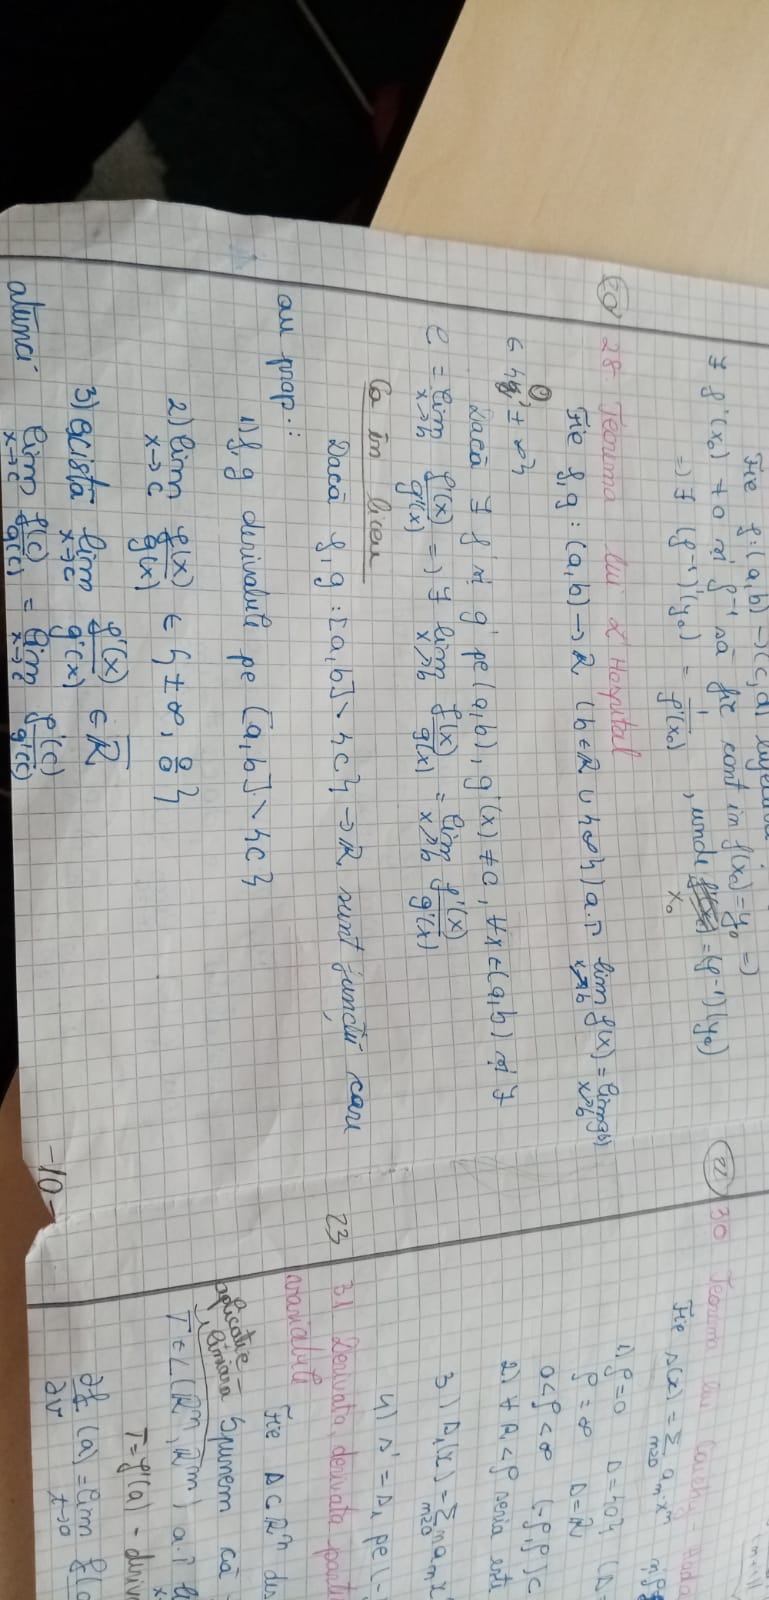 Fie f:(a,b)→(c,d)
∃ f'(x₀) ≠0 și f⁻¹ să fie cont în f(x₀)=y₀ =)
=) ∃ (f⁻¹)'(y₀) = 1/f'(x₀) , unde x₀ =(f⁻¹)(y₀)
20 28. Teorema lui L'Hospital
Fie f,g : (a,b)→R (b∈R∪{∞}) a.î lim x→b f(x)=lim x→b g(x)
∈ {0, ±∞}
Dacă ∃ f' și g' pe (a,b), g'(x) ≠0, ∀x∈(a,b) și ∃
l = lim x→b f'(x)/g'(x) =) ∃ lim x→b f(x)/g(x) = lim x→b f'(x)/g'(x)
Ca în liceu
Dacă f,g :[a,b]∖{c}→R sunt funcții care
au prop.:
1) f,g derivabile pe [a,b]∖{c}
2) lim x→c f(x)/g(x) ∈ {±∞, 0/0}
3) există lim x→c f'(x)/g'(x) ∈ R̅
atunci lim x→c f(c)/g(c) = lim x→c f'(c)/g'(c)
-10-
22 30 Teorema lui Cauchy-Hada
Fie s(x)=∑ n≥0 aₙxⁿ
1) ρ=0 D={0}
ρ=∞ D=R
0<ρ<∞ (-ρ,ρ)⊂
2) ∀ R<ρ seria este
3) s₁(x)=∑ n≥0 n aₙx
4) s'=s₁ pe (-
23 31 Derivata, derivata parți
variabile
Fie D⊂Rⁿ des
aplicație liniară
Spunem că
T∈L(Rⁿ,Rᵐ) a.î
T=f'(a) - deriv
∂f/∂v (a)=lim t→0 f(